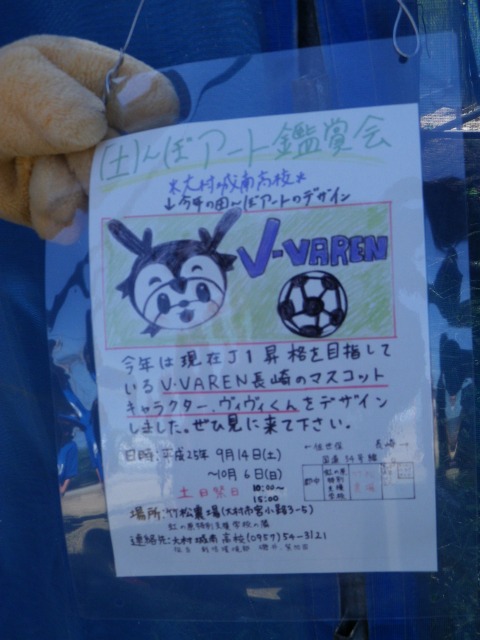 田んぼアート鑑賞会
*大村城南高校*
↓今年の田んぼアートのデザイン
V-VAREN
今年は現在J1昇格を目指して
いるV・VAREN長崎のマスコット
キャラクター、ヴィヴィくんをデザイン
しました。ぜひ見に来て下さい。
日時:平成25年9月14日(土)
~10月6日(日)
土日祭日 10:00~
15:00
←佐世保 長崎→
国道34号線
虹の原
特別
支援
学校
場所:竹松農場(大村市宮小路3-5)
虹の原特別支援学校の隣
連絡先:大村城南高校(0957)54-3121